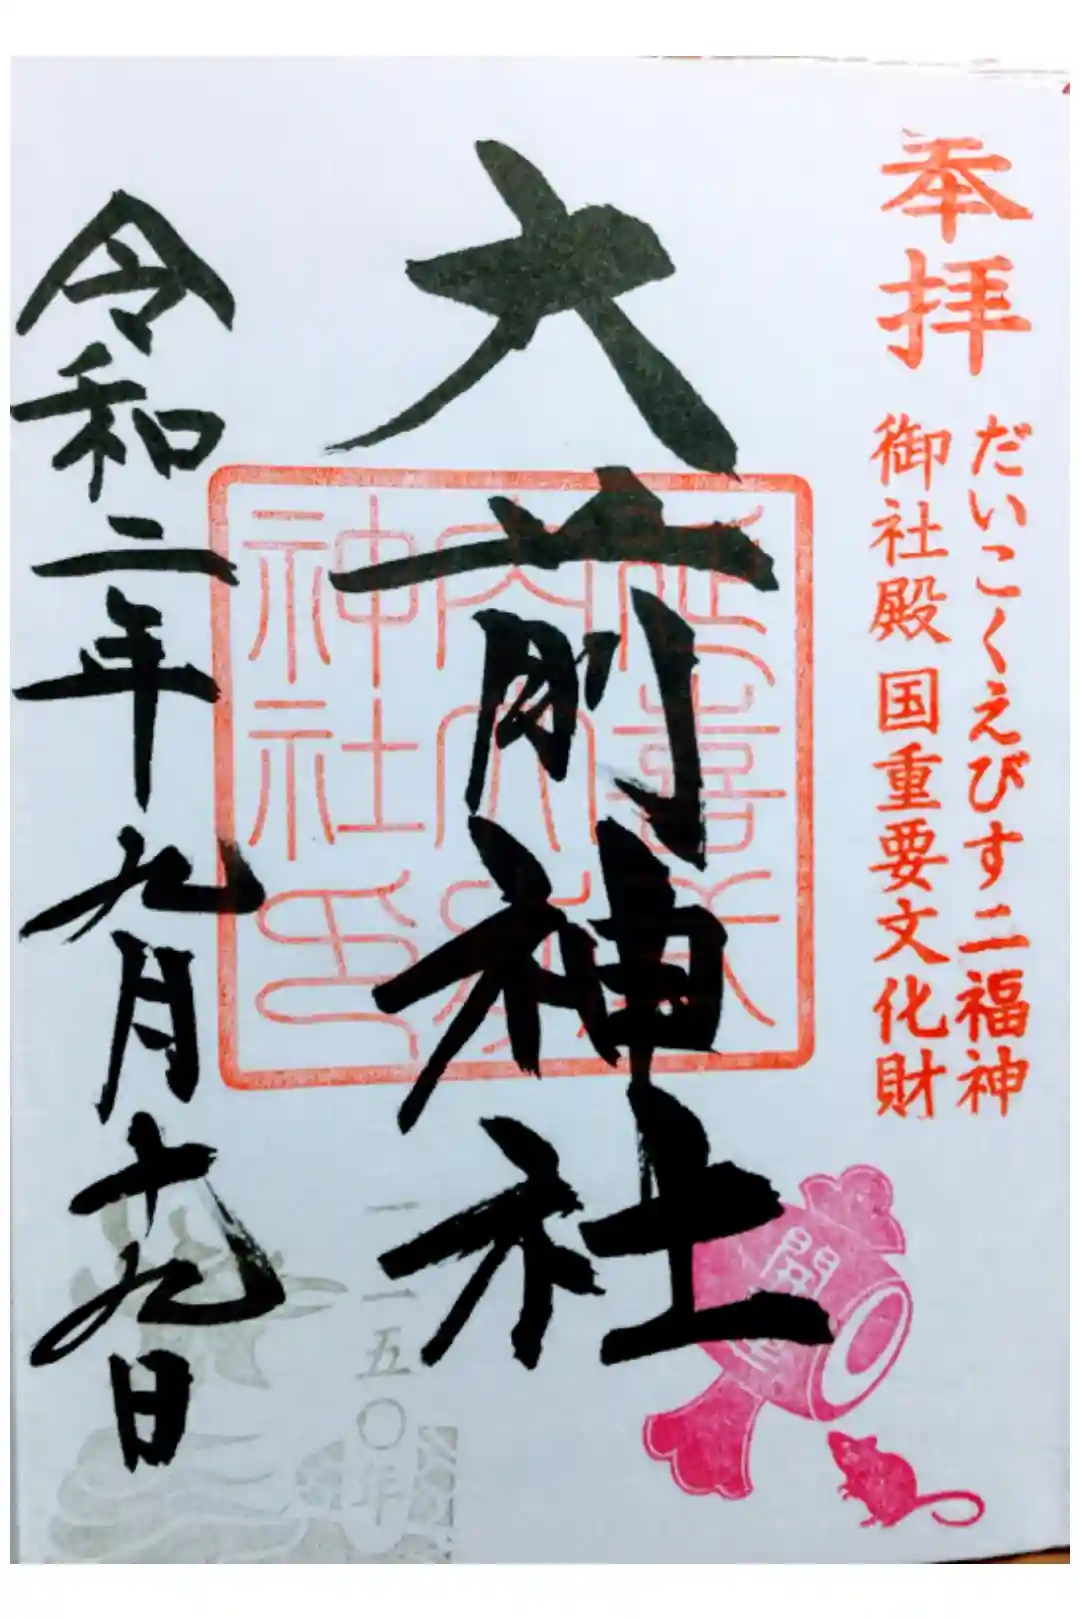 奉拝
だいこくえびす二福神
御社殿 国重要文化財
大前神社
延喜式
内大前
神社印
開運
一二五〇年
令和二年九月十九日